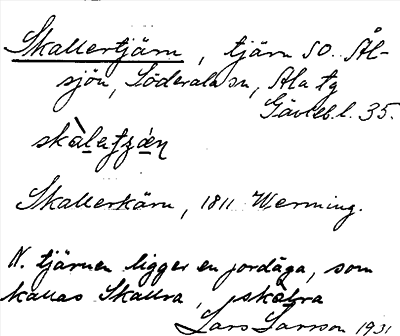 Skallertjärn, tjärn SO. Ål-
sjön, Söderala sn, Ala tg
Gävleb. l. 35.
Skallerkärn, 1811 Werming.
N. tjärnen ligger en jordäga, som
kallas Skallra, skàlra
Lars Larsson 1931